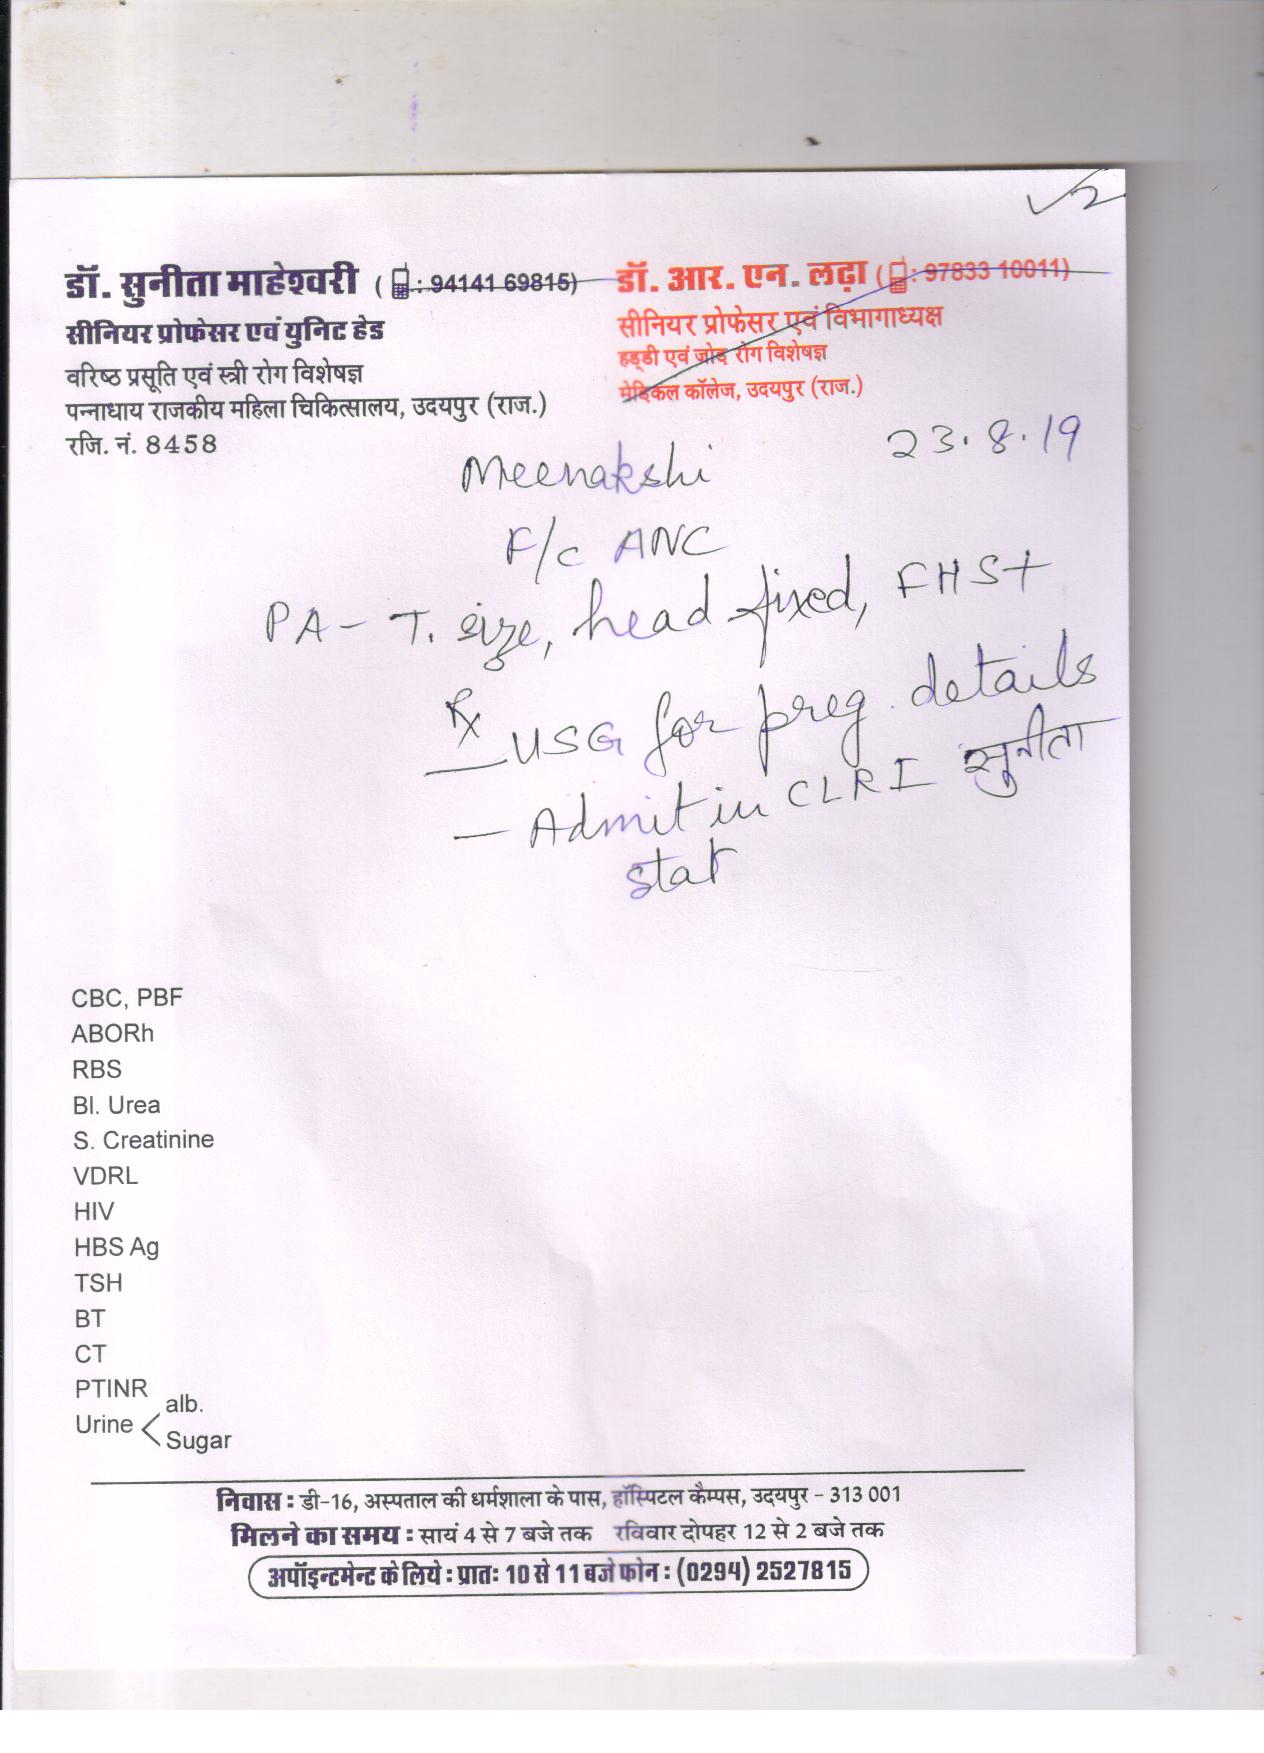 डॉ. सुनीता माहेश्वरी ( : 94141 69815)
सीनियर प्रोफेसर एवं युनिट हेड
वरिष्ठ प्रसूति एवं स्त्री रोग विशेषज्ञ
पन्नाधाय राजकीय महिला चिकित्सालय, उदयपुर (राज.)
रजि. नं. 8458
डॉ. आर. एन. लढ़ा ( : 97833 10011)
सीनियर प्रोफेसर एवं विभागाध्यक्ष
हड्डी एवं जोड़ रोग विशेषज्ञ
मेडिकल कॉलेज, उदयपुर (राज.)
23.8.19
Meenakshi
F/c ANC
PA - T. size, head fixed, FHS+
Rx
- USG for preg. details
- Admit in CLR I सुनीता
stat
CBC, PBF
ABORh
RBS
Bl. Urea
S. Creatinine
VDRL
HIV
HBS Ag
TSH
BT
CT
PTINR
Urine < alb.
Sugar
निवास : डी-16, अस्पताल की धर्मशाला के पास, हॉस्पिटल कैम्पस, उदयपुर - 313 001
मिलने का समय : सायं 4 से 7 बजे तक रविवार दोपहर 12 से 2 बजे तक
अपॉइन्टमेन्ट के लिये : प्रातः 10 से 11 बजे फोन : (0294) 2527815